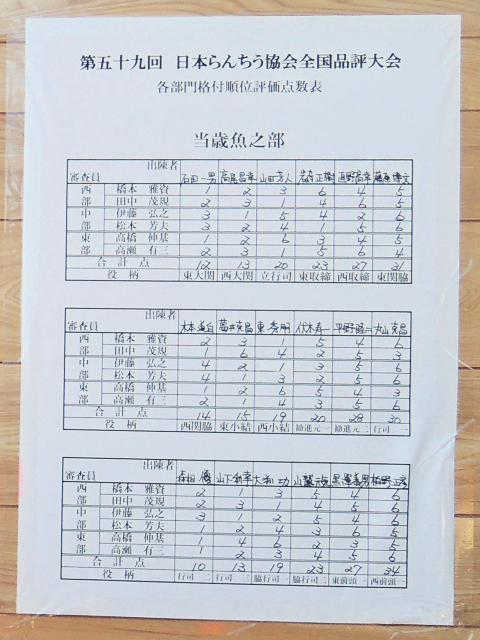 第五十九回 日本らんちう協会全国品評大会
各部門格付順位評価点数表
当歳魚之部
出陳者
審査員 石田一男 高尾昌幸 山田芳人 正樹 高幸
西 橋本 雅資 1 2 3 6 4 5
部 田中 茂規 2 3 1 4 6 5
中 伊藤 弘之 3 1 5 4 2 6
部 松本 芳夫 3 2 4 1 5 6
東 高橋 伸基 1 2 6 3 4 5
部 高瀬 有三 2 3 1 5 6 4
合計点 12 13 20 23 27 31
役柄 東大関 西大関 立行司 東取締 西取締 東関脇
出陳者
審査員 東秀明 平野 丸山
西 橋本 雅資 2 3 1 5 4 6
部 田中 茂規 1 6 4 2 5 3
中 伊藤 弘之 4 2 1 3 5 6
部 松本 芳夫 4 1 3 2 5 6
東 高橋 伸基 1 2 6 5 4 3
部 高瀬 有三 2 1 4 3 5 6
合計点 14 15 19 20 28 30
役柄 西関脇 東小結 西小結 勧進元一 勧進元二 行司一
出陳者
審査員 森田 山下 大和功
西 橋本 雅資 2 1 3 5 4 6
部 田中 茂規 2 3 1 4 5 6
中 伊藤 弘之 3 1 2 5 4 6
部 松本 芳夫 1 2 4 3 6 5
東 高橋 伸基 1 4 6 2 3 5
部 高瀬 有三 1 2 3 4 5 6
合計点 10 13 19 23 27 34
役柄 行司二 行司三 脇行司一 脇行司二 東前頭一 西前頭一